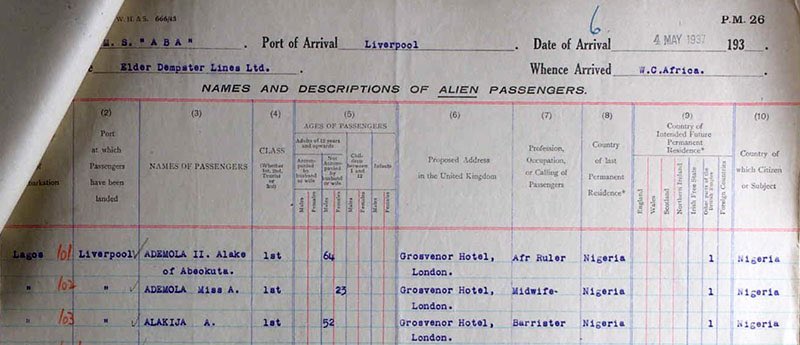 W. H. & S. 666/45 P.M. 26
6
S. "ABA" Port of Arrival Liverpool Date of Arrival 4 MAY 1937 193
Elder Dempster Lines Ltd. Whence Arrived W.C.Africa.
NAMES AND DESCRIPTIONS OF ALIEN PASSENGERS.
(2) (3) (4) (5) (6) (7) (8) (9) (10)
Port at which Passengers have been landed
NAMES OF PASSENGERS
CLASS (Whether 1st, 2nd, Tourist or 3rd)
AGES OF PASSENGERS
Adults of 12 years and upwards
Accompanied by husband or wife
Not Accompanied by husband or wife
Children between 1 and 12
Infants
Males Females Males Females Males Females Males Females
Proposed Address in the United Kingdom
Profession, Occupation, or Calling of Passengers
Country of last Permanent Residence*
Country of Intended Future Permanent Residence*
England
Wales
Scotland
Northern Ireland
Irish Free State
Other parts of the British Empire
Foreign Countries
Country of which Citizen or Subject
Lagos 101 Liverpool ADEMOLA II. Alake 1st 64 Grosvenor Hotel, Afr Ruler Nigeria 1 Nigeria
of Abeokuta. London.
" 102 " ADEMOLA Miss A. 1st 23 Grosvenor Hotel, Midwife- Nigeria 1 Nigeria
London.
" 103 " ALAKIJA A. 1st 52 Grosvenor Hotel, Barrister Nigeria 1 Nigeria
London.